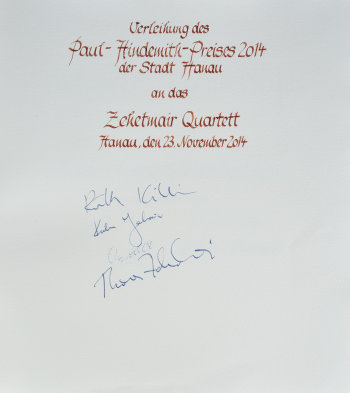 Verleihung des
Paul-Hindemith-Preises 2014
der Stadt Hanau
an das
Zehetmair Quartett
Hanau, den 23. November 2014
Ruth Killi
Thomas Zehetmair